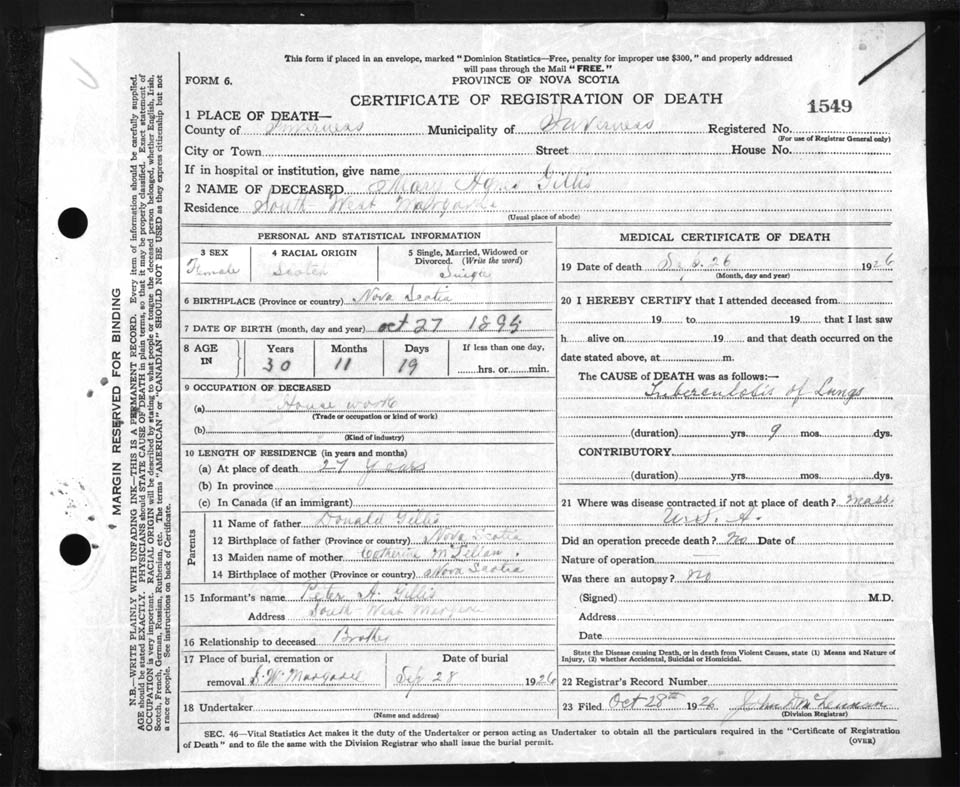 This form if placed in an envelope, marked "Dominion Statistics—Free, penalty for improper use $300," and properly addressed
will pass through the Mail "FREE."
FORM 6.
PROVINCE OF NOVA SCOTIA
CERTIFICATE OF REGISTRATION OF DEATH
1549
1 PLACE OF DEATH—
County of Inverness Municipality of Inverness Registered No.
(For use of Registrar General only)
City or Town Street House No.
If in hospital or institution, give name
2 NAME OF DECEASED Mary Agnes Gillis
Residence South West Margaree
(Usual place of abode)
PERSONAL AND STATISTICAL INFORMATION
3 SEX 4 RACIAL ORIGIN 5 Single, Married, Widowed or
Divorced. (Write the word)
Female Scotch Single
6 BIRTHPLACE (Province or country) Nova Scotia
7 DATE OF BIRTH (month, day and year) Oct 27 1895
8 AGE IN Years Months Days If less than one day,
30 11 19 hrs. or min.
9 OCCUPATION OF DECEASED
(a) House work
(Trade or occupation or kind of work)
(b)
(Kind of industry)
10 LENGTH OF RESIDENCE (in years and months)
(a) At place of death 27 Years
(b) In province
(c) In Canada (if an immigrant)
Parents
11 Name of father Donald Gillis
12 Birthplace of father (Province or country) Nova Scotia
13 Maiden name of mother Catherine
14 Birthplace of mother (Province or country) Nova Scotia
15 Informant's name Peter A. Gillis
Address South West Margaree
16 Relationship to deceased Brother
17 Place of burial, cremation or Date of burial
removal S. W. Margaree Sep 28 1926
18 Undertaker
(Name and address)
MEDICAL CERTIFICATE OF DEATH
19 Date of death Sep. 26 1926
(Month, day and year)
20 I HEREBY CERTIFY that I attended deceased from
19 to 19 that I last saw
h alive on 19 and that death occurred on the
date stated above, at m.
The CAUSE of DEATH was as follows:—
Tuberculosis of Lungs
(duration) yrs. 9 mos. dys.
CONTRIBUTORY
(duration) yrs. mos. dys.
21 Where was disease contracted if not at place of death? Mass
U. S. A.
Did an operation precede death? No Date of
Nature of operation
Was there an autopsy? No
(Signed) M.D.
Address
Date
State the Disease causing Death, or in death from Violent Causes, state (1) Means and Nature of
Injury, (2) whether Accidental, Suicidal or Homicidal.
22 Registrar's Record Number
23 Filed Oct 28th 1926 John D McLennan
(Division Registrar)
SEC. 46—Vital Statistics Act makes it the duty of the Undertaker or person acting as Undertaker to obtain all the particulars required in the "Certificate of Registration
of Death" and to file the same with the Division Registrar who shall issue the burial permit.
(OVER)
MARGIN RESERVED FOR BINDING
N.B.—WRITE PLAINLY WITH UNFADING INK—THIS IS A PERMANENT RECORD. Every item of information should be carefully supplied.
AGE should be stated EXACTLY. PHYSICIANS should STATE CAUSE OF DEATH in plain terms, so that it may be properly classified. Exact statement of
OCCUPATION is very important. RACIAL ORIGIN will be described by stating to what people or tongue the deceased person belonged, whether English, Irish,
Scotch, French, German, Russian, Ruthenian, etc. The terms "AMERICAN" or "CANADIAN" SHOULD NOT BE USED as they express citizenship but not
a race or people. See instructions on back of Certificate.